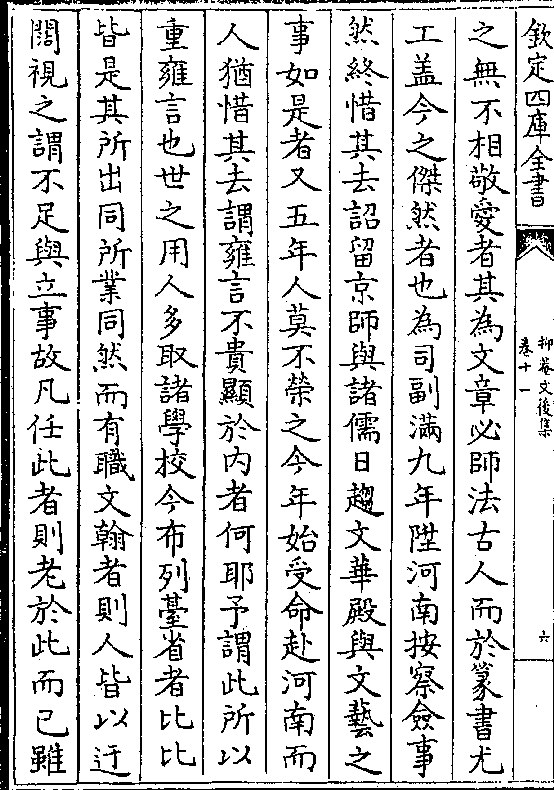 欽定四庫全書
抑菴文後集
卷十一
六
之無不相敬愛者其為文章必師法古人而於篆書尤
工盖今之傑然者也為司副滿九年陞河南按察僉事
然終惜其去詔留京師與諸儒日趨文華殿與文藝之
事如是者又五年人莫不榮之今年始受命赴河南而
人猶惜其去謂雍言不貴顯於内者何耶予謂此所以
重雍言也世之用人多取諸學校今布列臺省者比比
皆是其所出同所業同然而有職文翰者則人皆以迂
闊視之謂不足與立事故凡任此者則老於此而已雖